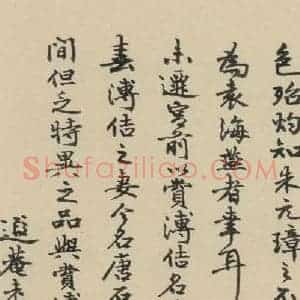 色殆灼知朱元璋之不
為袁海叟者幸耳
未遷寓前賞溥佶名
畫溥佶之妻今名唐石
間但乏特異之品與賞溥
菴未
Shufaziliao.COM